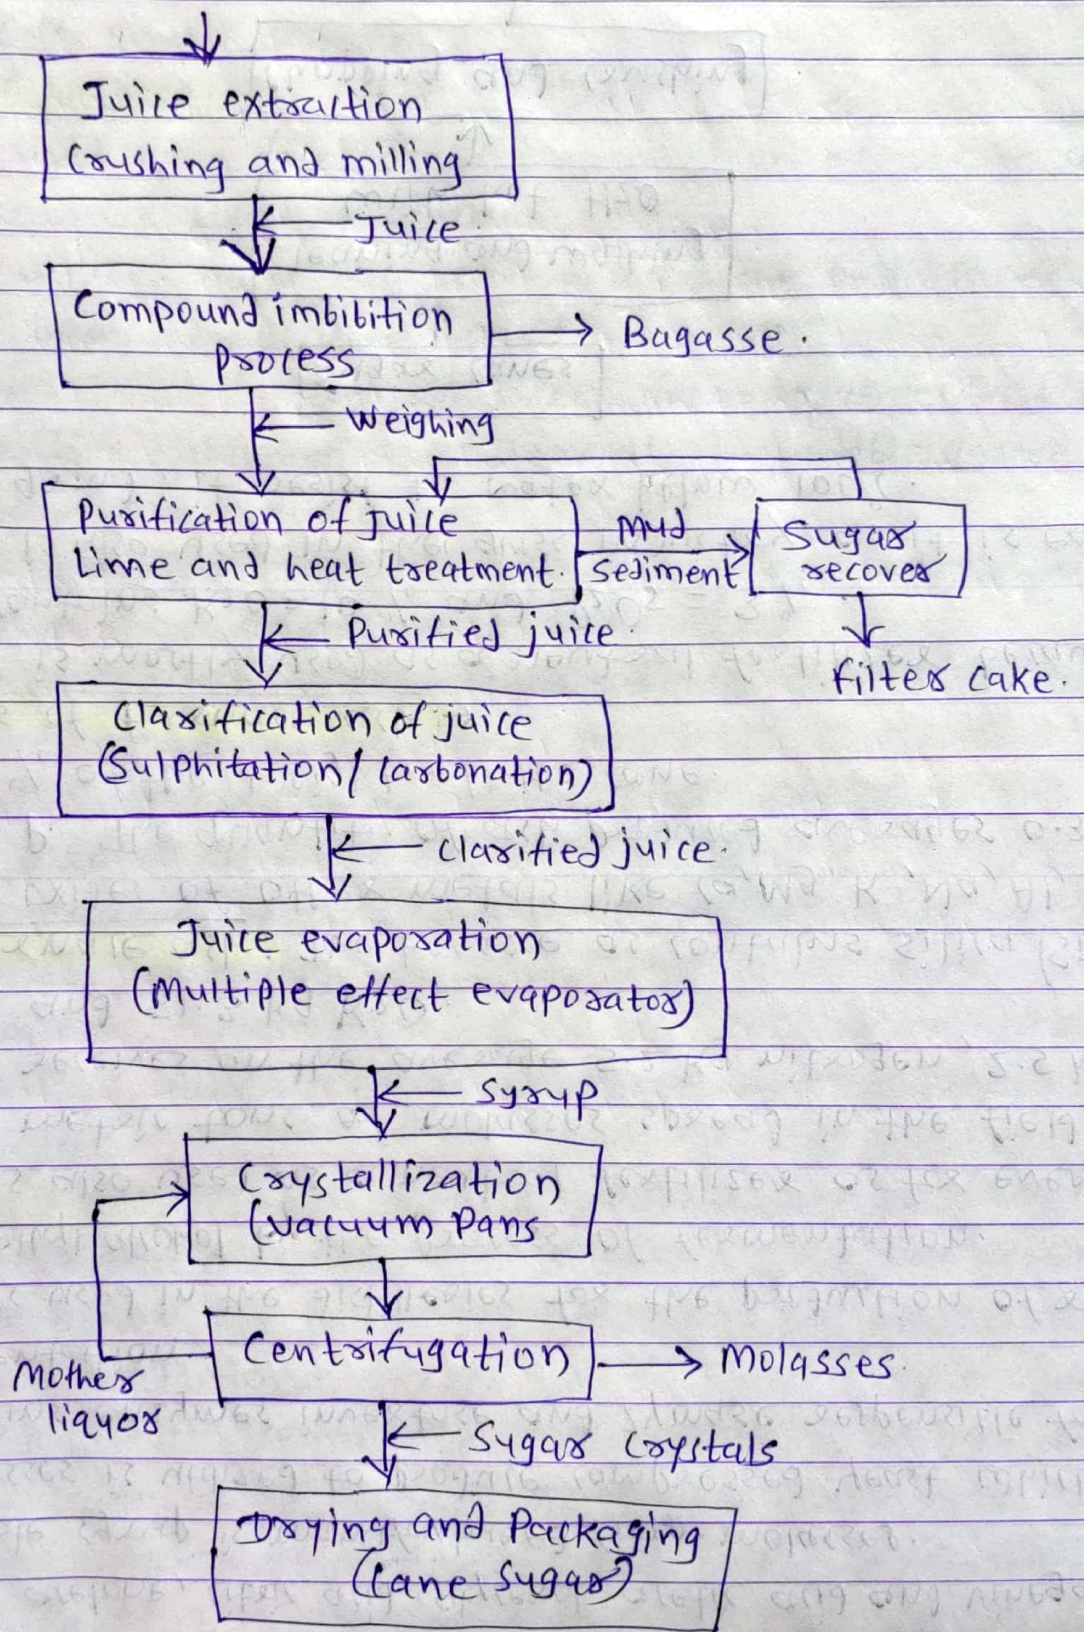 Juice extraction
Crushing and milling
Juice
Compound imbibition
process
Bagasse.
Weighing
Purification of juice
Lime and heat treatment.
Mud
Sediment
Sugar
recover
Purified juice.
filter cake.
Clarification of juice
(Sulphitation/Carbonation)
Clarified juice.
Juice evaporation
(Multiple effect evaporator)
Syrup
Crystallization
(vacuum Pans
Centrifugation
Molasses.
Mother
liquor
Sugar Crystals
Drying and Packaging
(Cane Sugar)